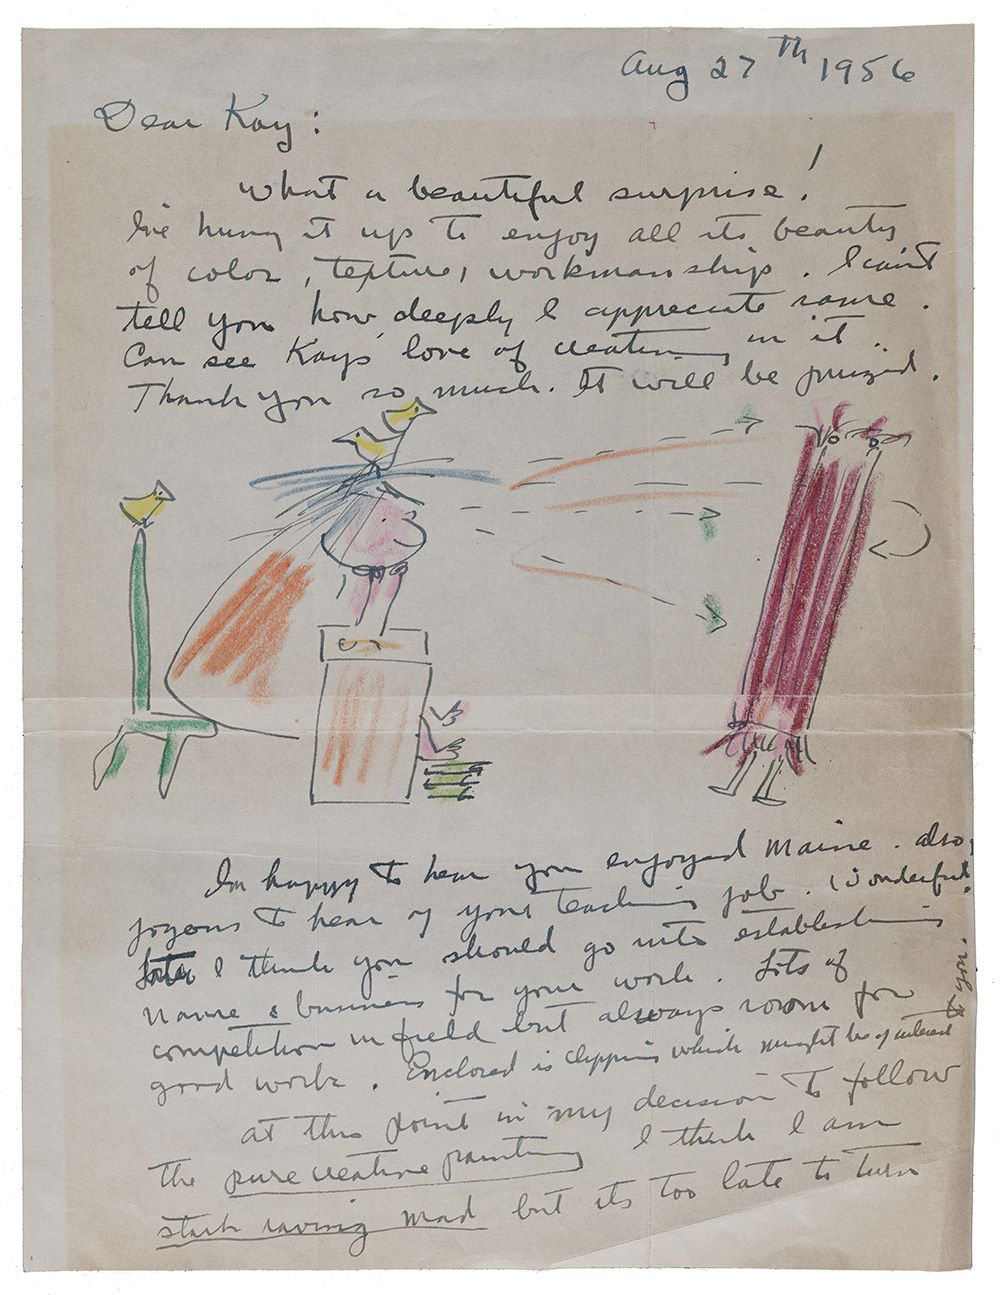 Aug 27th 1956
Dear Kay:
What a beautiful surprise!
I've hung it up to enjoy all its beauty
of color, texture, workmanship. I can't
tell you how deeply I appreciate same.
Can see Kay's love of creating in it.
Thank you so much. It will be prized.
Im happy to hear you enjoyed Maine. also,
joyous to hear of your teaching job. Wonderful.
I think you should go into establishing
name & business for your work. Lots of
competition in field but always room for
good work. Enclosed is clipping which might be of interest
to you.
at this point in my decision to follow
the pure creative painting I think I am
stark raving mad but its too late to turn